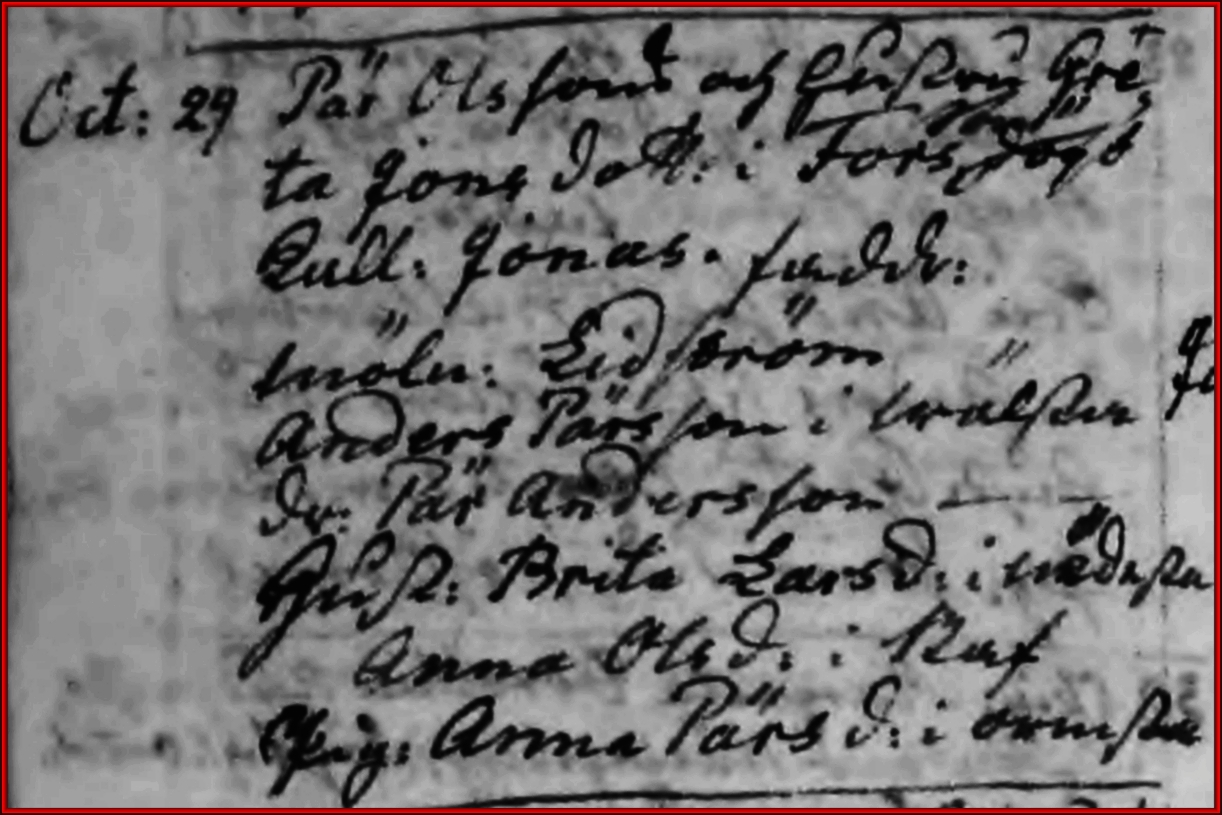 Oct: 29 Pär Olssons och hustru Gre
ta Jons dott: i Fors
kull: Jonas. faddr:
möln: Lidström
Anders Pärsson i
dr: Pär Andersson
hust: Brita Larsd: i
Anna Olsd: i Raf
Pig: Anna Pärs d: i